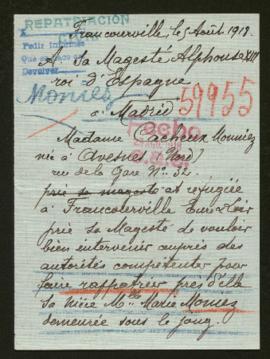 REPATRIACION
Francourville, 5 Août 1918.
A Sa Magesté Alphonse XIII
roi d'Espagne
à Madrid
Devolver
Momez
59955
Hecho
Madame Cacheux Monniez
née à Avesnes (Nord)
rue de la Gare N° 32.
prie sa magesté et réfugiée
à Francourville Eure & Loir
prie Sa Magesté de vouloir
bien intervenir auprès des
autorités compétentes pour
faire rappatrier près d'elle
sa Mère Mme Marie Momez
demeurée sous le joug